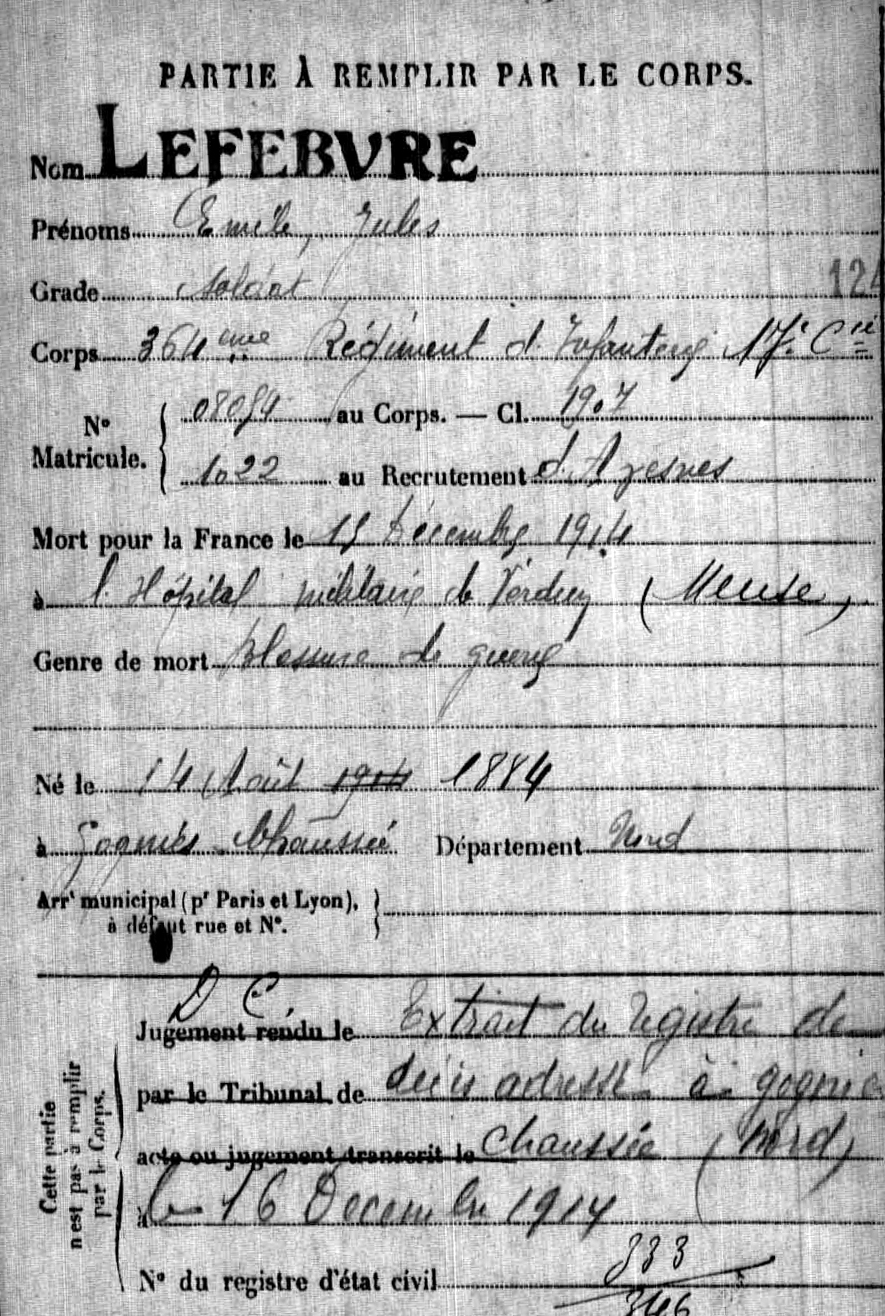 PARTIE À REMPLIR PAR LE CORPS.
Nom LEFEBVRE
Prénoms Emile, Jules
Grade soldat
124
Corps 364ème Régiment d'Infanterie 17e Cie
N° Matricule. 08094 au Corps. — Cl. 1907
1022 au Recrutement d'Avesnes
Mort pour la France le 15 Décembre 1914
à l'Hôpital militaire de Verdun (Meuse)
Genre de mort blessure de guerre
Né le 14 Août 1914 1884
à Gognies Chaussée Département Nord
Arrt municipal (pr Paris et Lyon),
à défaut rue et N°.
D C.
Jugement rendu le Extrait du registre de
par le Tribunal de décès adressé à Gognies
acte ou jugement transcrit le Chaussée (Nord)
à le 16 Décembre 1914
N° du registre d'état civil 333
346
Cette partie
n'est pas à remplir
par le Corps.